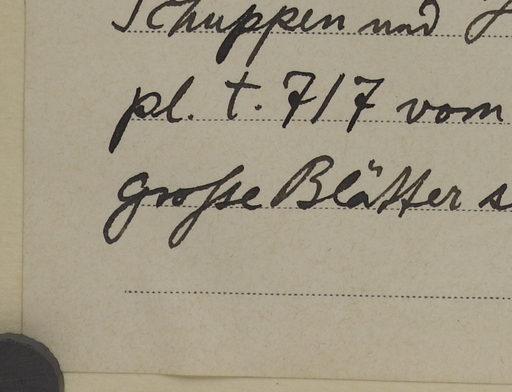 Schuppen und
pl. t. 717 vom
große Blätter s